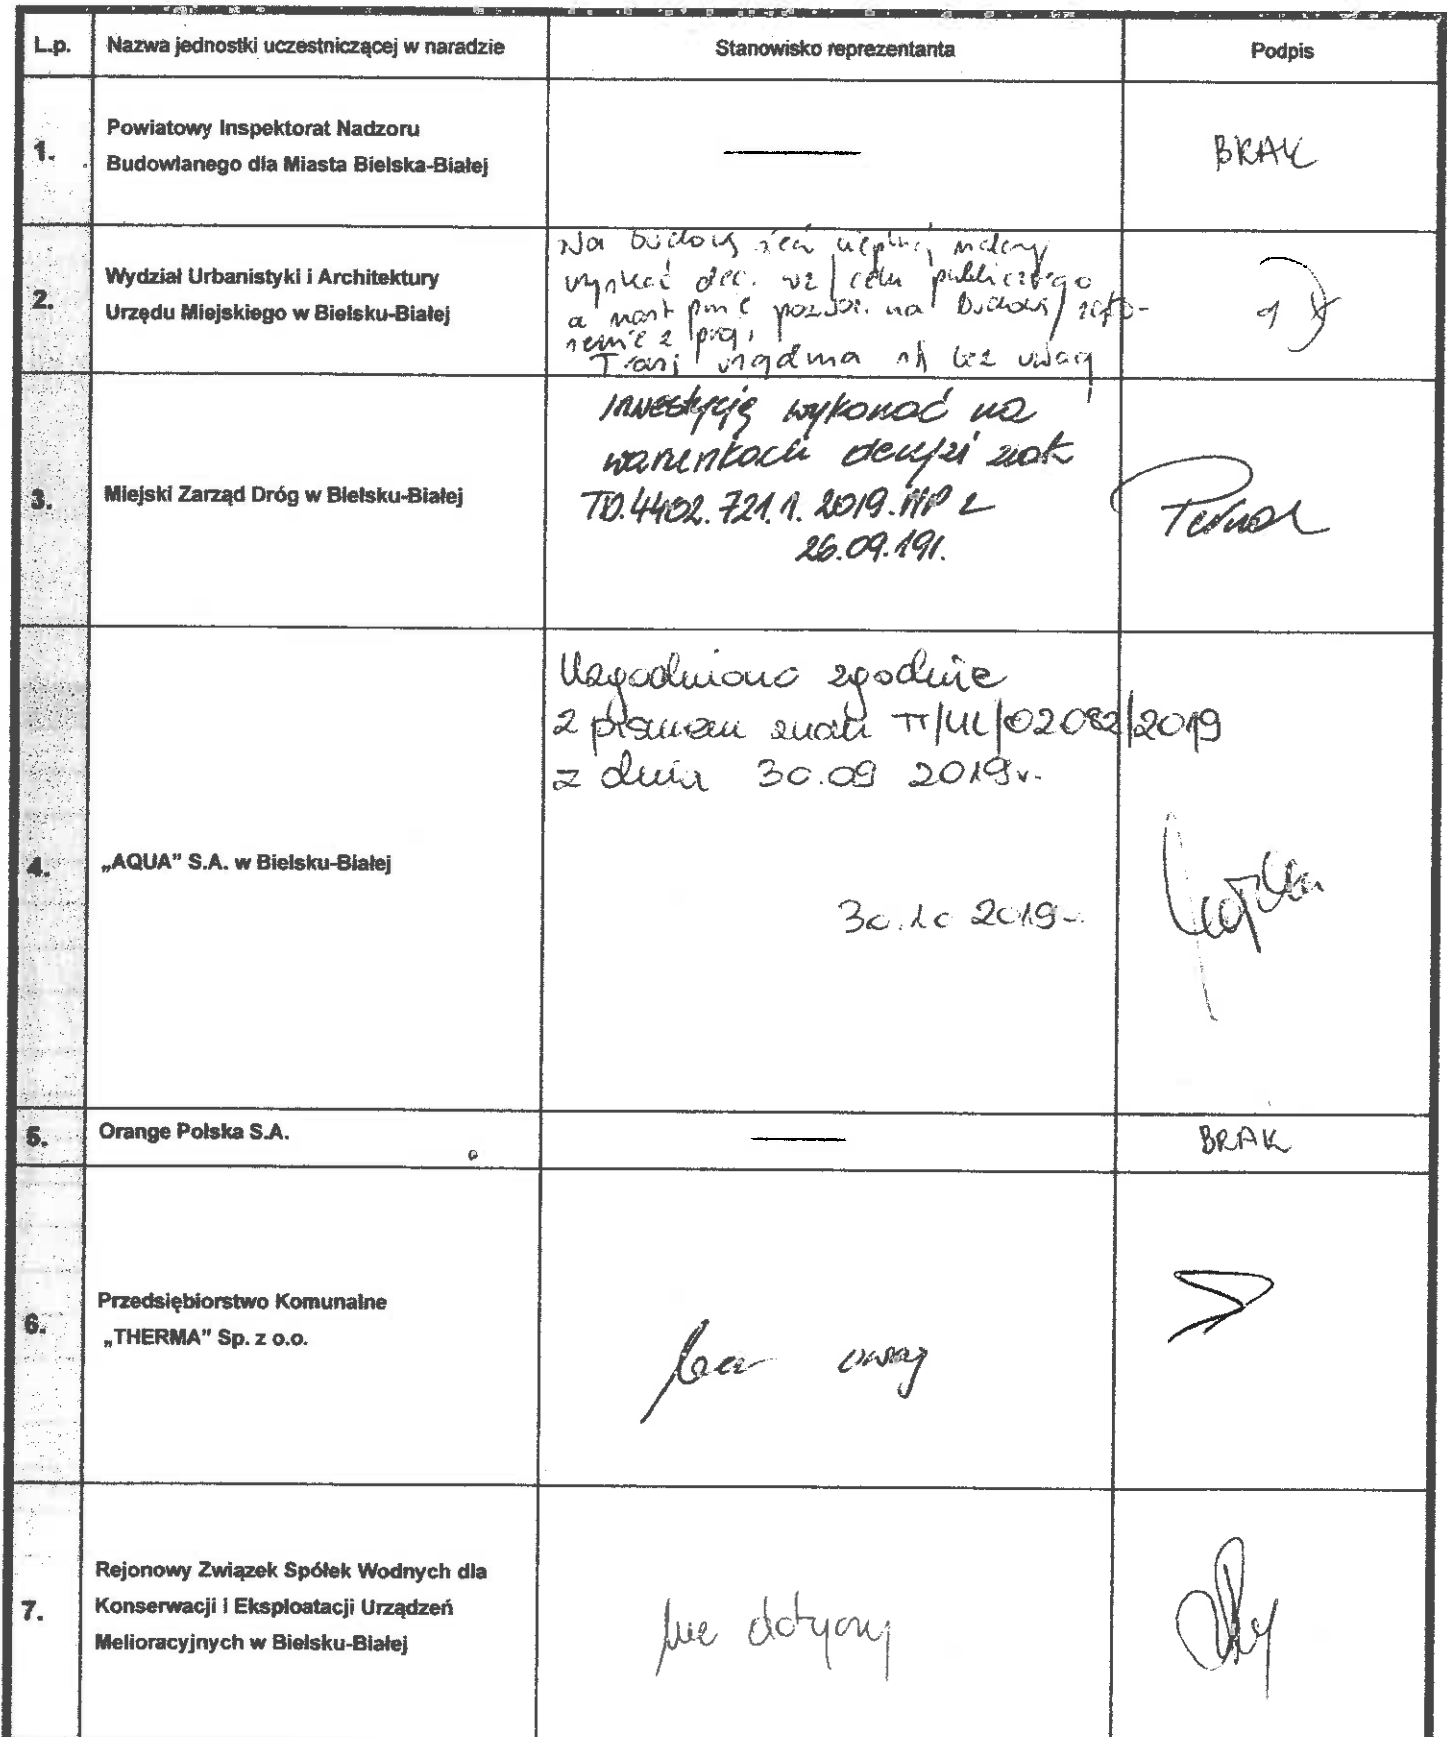 L.p. Nazwa jednostki uczestniczącej w naradzie Stanowisko reprezentanta Podpis
1. Powiatowy Inspektorat Nadzoru
Budowlanego dla Miasta Bielska-Białej
BRAK
2. Wydział Urbanistyki i Architektury
Urzędu Miejskiego w Bielsku-Białej
Na budowę sieci cieplnej należy
uzyskać dec. wz / celu publicznego
a nast pozwol. na budowę /
bez uwag
3. Miejski Zarząd Dróg w Bielsku-Białej
Inwestycję wykonać na
warunkach decyzji znak
TD.4402.721.1.2019.MP z
26.09.19r.
4. „AQUA” S.A. w Bielsku-Białej
Uzgodniono zgodnie
z pismem znak TT/UL/02082/2019
z dnia 30.09 2019r.
30.10 2019r.
5. Orange Polska S.A.
BRAK
6. Przedsiębiorstwo Komunalne
„THERMA” Sp. z o.o.
bez uwag
7. Rejonowy Związek Spółek Wodnych dla
Konserwacji i Eksploatacji Urządzeń
Melioracyjnych w Bielsku-Białej
nie dotyczy